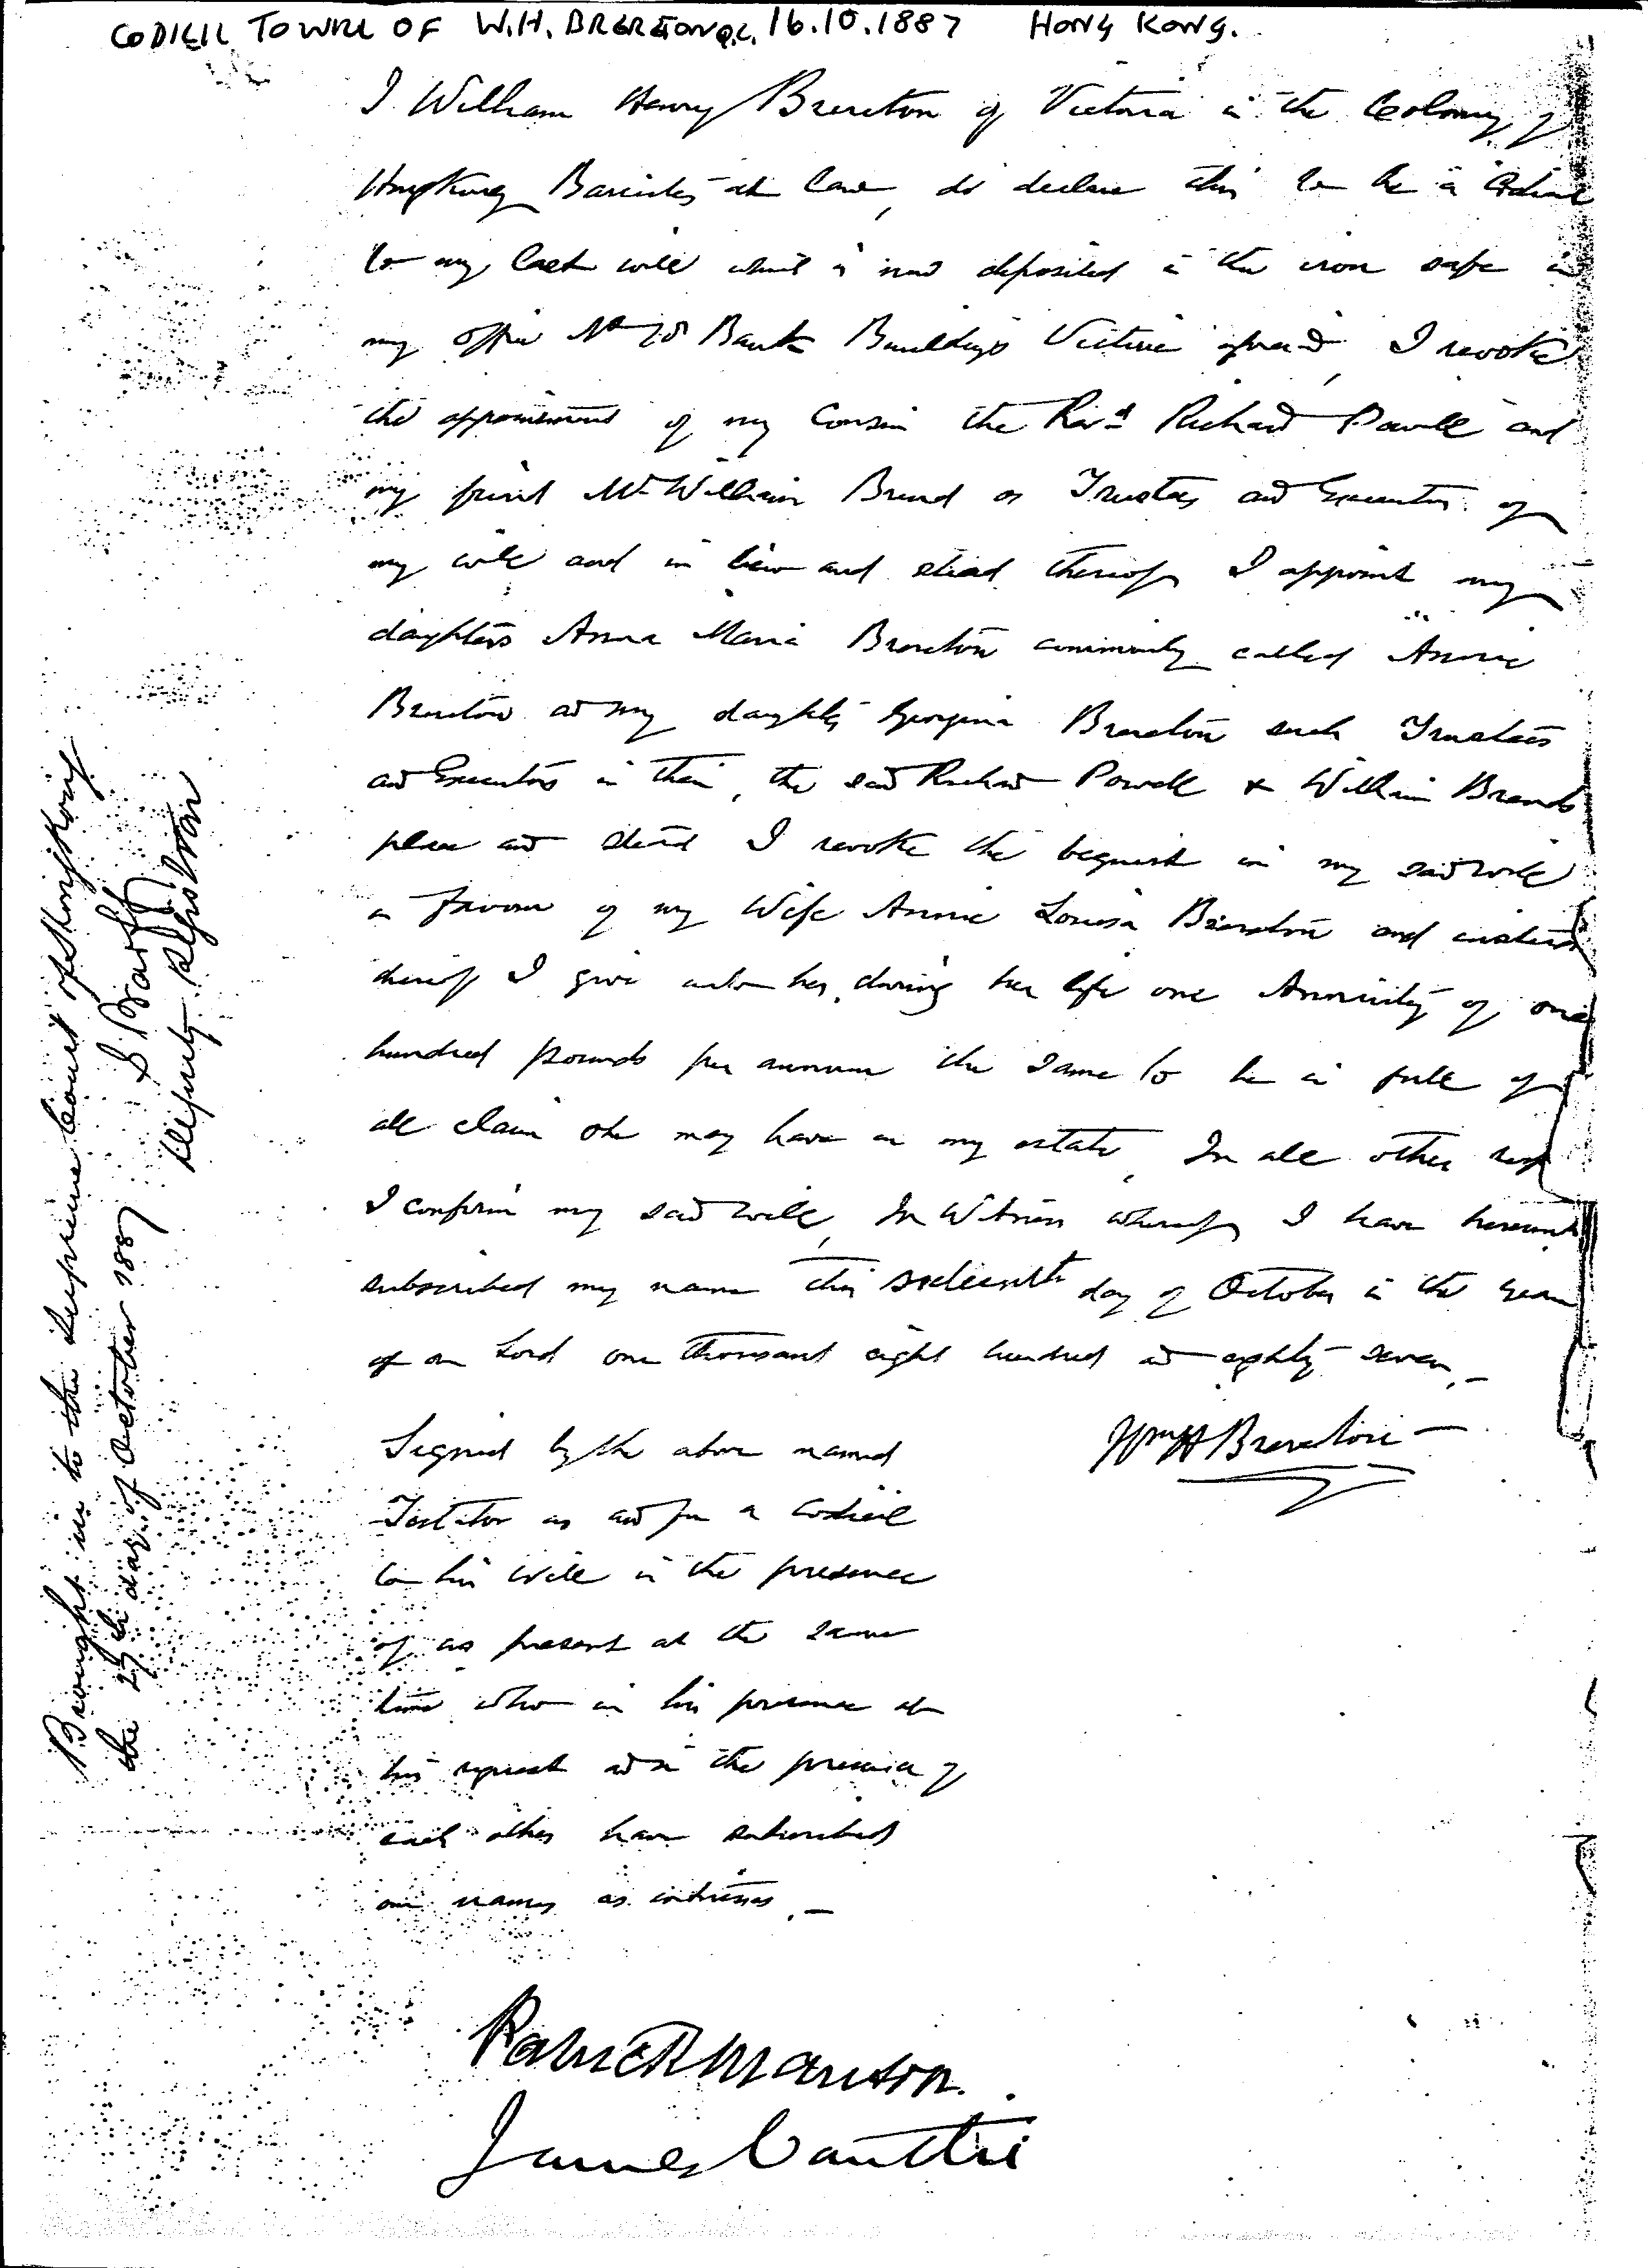 CODICIL TO WILL OF W.H. BRERETON Q.C. 16.10.1887 HONG KONG.
I William Henry Brereton of Victoria in the Colony of
Hongkong Barrister at law, do declare this to be a Codicil
to my last will which is now deposited in the iron safe in
my office No Bank Buildings Victoria aforesaid, I revoke
the appointment of my Cousin the Revd Richard Powell and
my friend Mr William Brand as Trustees and Executors of
my will and in lieu and stead thereof I appoint my
daughters Anna Maria Brereton commonly called Annie
Brereton and my daughter Georgina Brereton such Trustees
and Executors in their, the said Richard Powell & William Brands
place and stead I revoke the bequest in my said will
in favour of my Wife Annie Louisa Brereton and instead
thereof I give unto her, during her life one Annuity of one
hundred pounds per annum the same to be in full of
all claim she may have on my estate, In all other
I confirm my said will, In Witness whereof I have hereunto
subscribed my name this sixteenth day of October in the year
of our Lord one thousand eight hundred and eighty seven.—
Wm H Brereton —
Signed by the above named
Testator as and for a Codicil
to his Will in the presence
of us present at the same
time who in his presence at
his request and in the presence of
each other have subscribed
our names as witnesses.—
Patrick Manson.
James Cantlie
Brought in to the Supreme Court of Hongkong
the 27th day of October 1887
Deputy Registrar